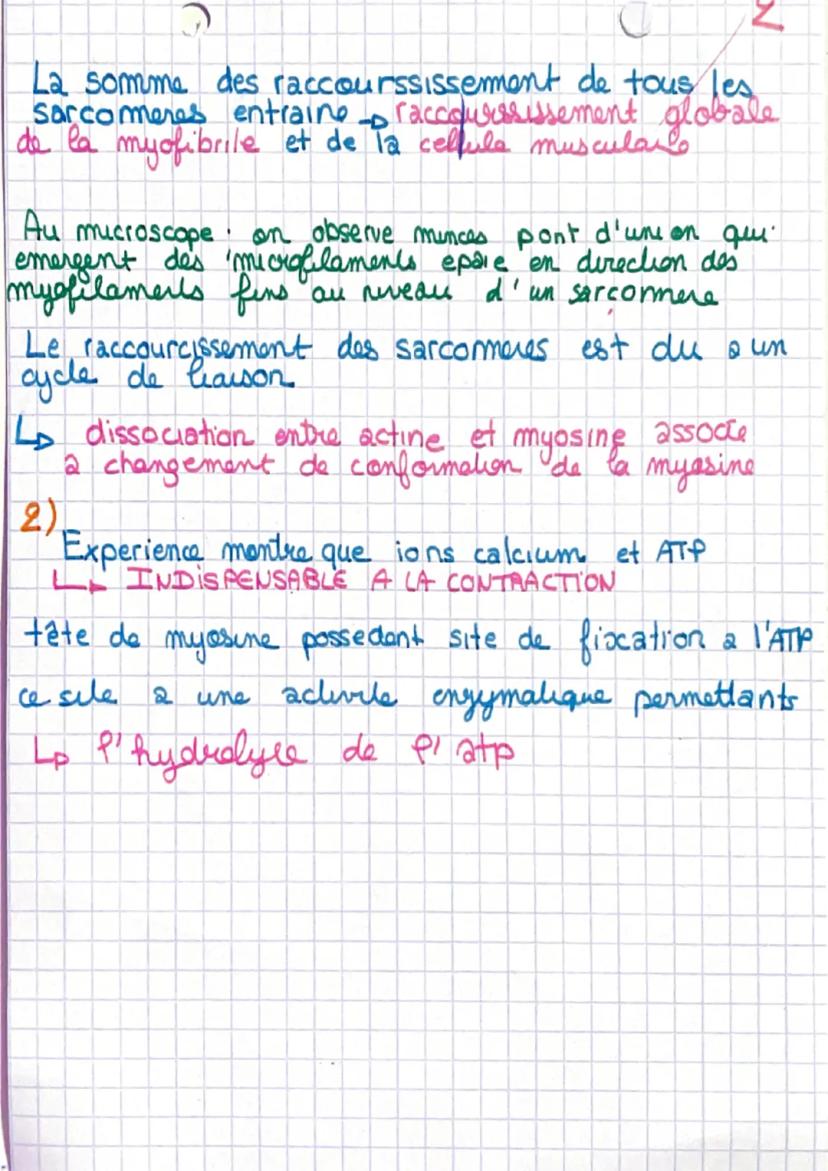 2
La somme des raccourssissement de tous les
sarcomeres entraine → raccourssissement globale
de la myofibrile et de la cellule musculaire
Au microscope : on observe minces pont d'union qui
emergent des microfilaments epaie en direction des
myofilaments fins au niveau d'un sarcomere
Le raccourcissement des sarcomeres est du a un
cycle de liaison
↳ dissociation entre actine et myosine associe
a changement de conformation de la myosine
2)
Experience montre que ions calcium et ATP
↳ INDISPENSABLE A LA CONTRACTION
tête de myosine possedant site de fixation a l'ATP
ce site a une activite enzymatique permettants
↳ l'hydrolyse de l'atp